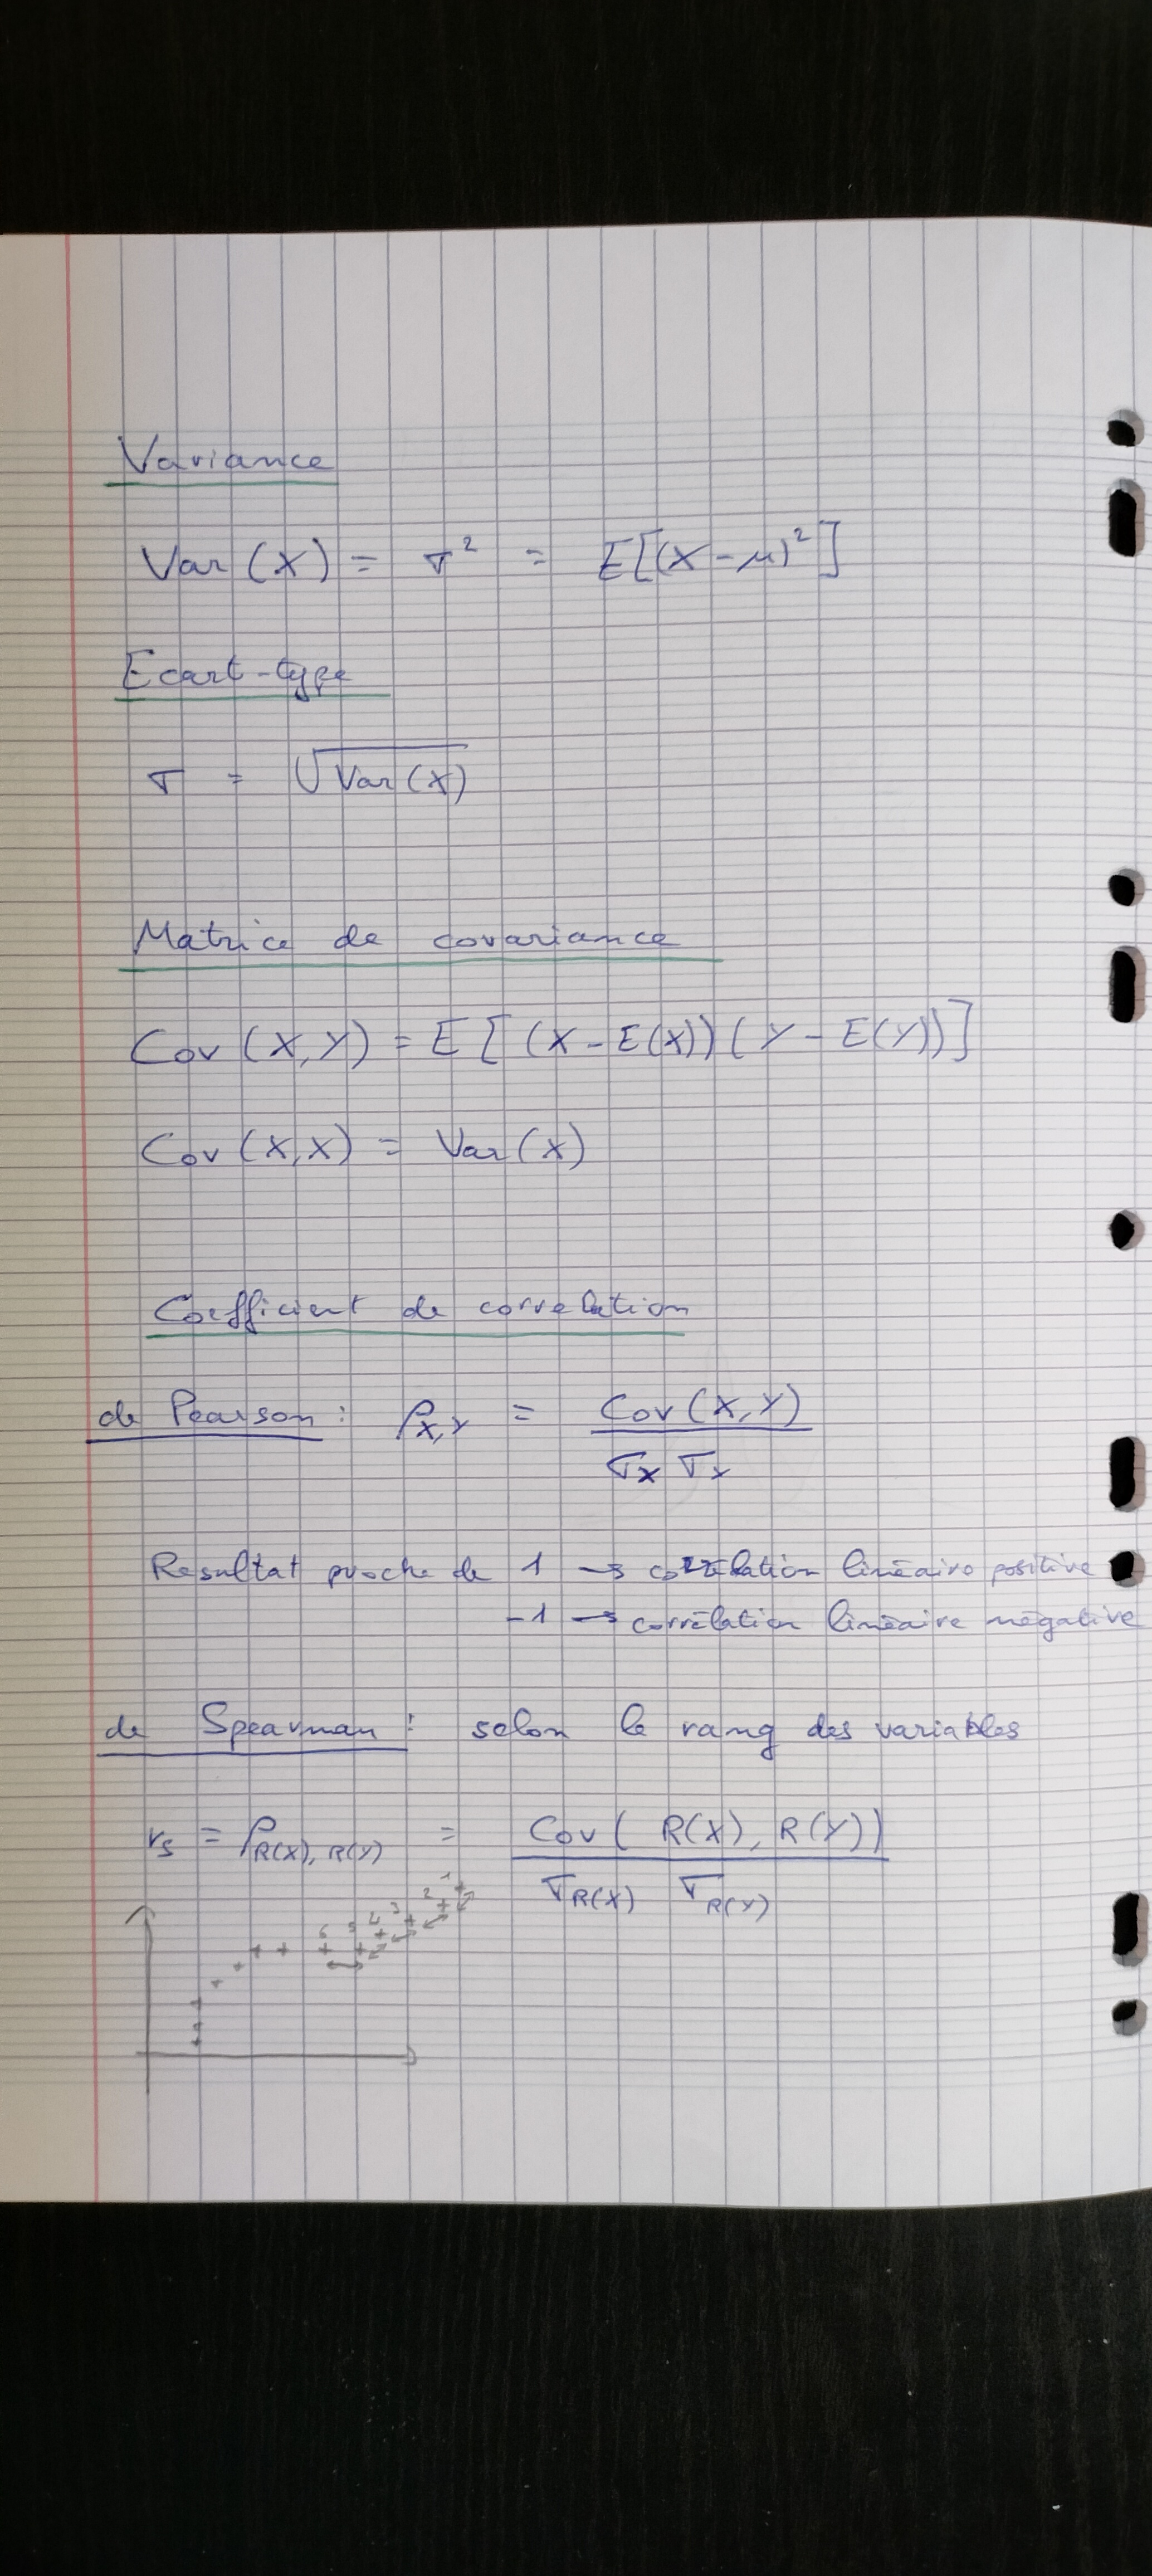 Variance
Var (X) = σ² = E[(X-μ)²]
Ecart-type
σ = √Var(X)
Matrice de covariance
Cov (X,Y) = E [ (X - E(X)) ( Y - E(Y)) ]
Cov (X,X) = Var (X)
Coefficient de correlation
de Pearson : ρX,Y = Cov (X,Y) / σX σY
Resultat proche de 1 → corrélation linéaire positive
-1 → corrélation linéaire négative
de Spearman : selon le rang des variables
rs = ρR(X), R(Y) = Cov ( R(X), R(Y)) / σR(X) σR(Y)
6 5 4 3 2 1